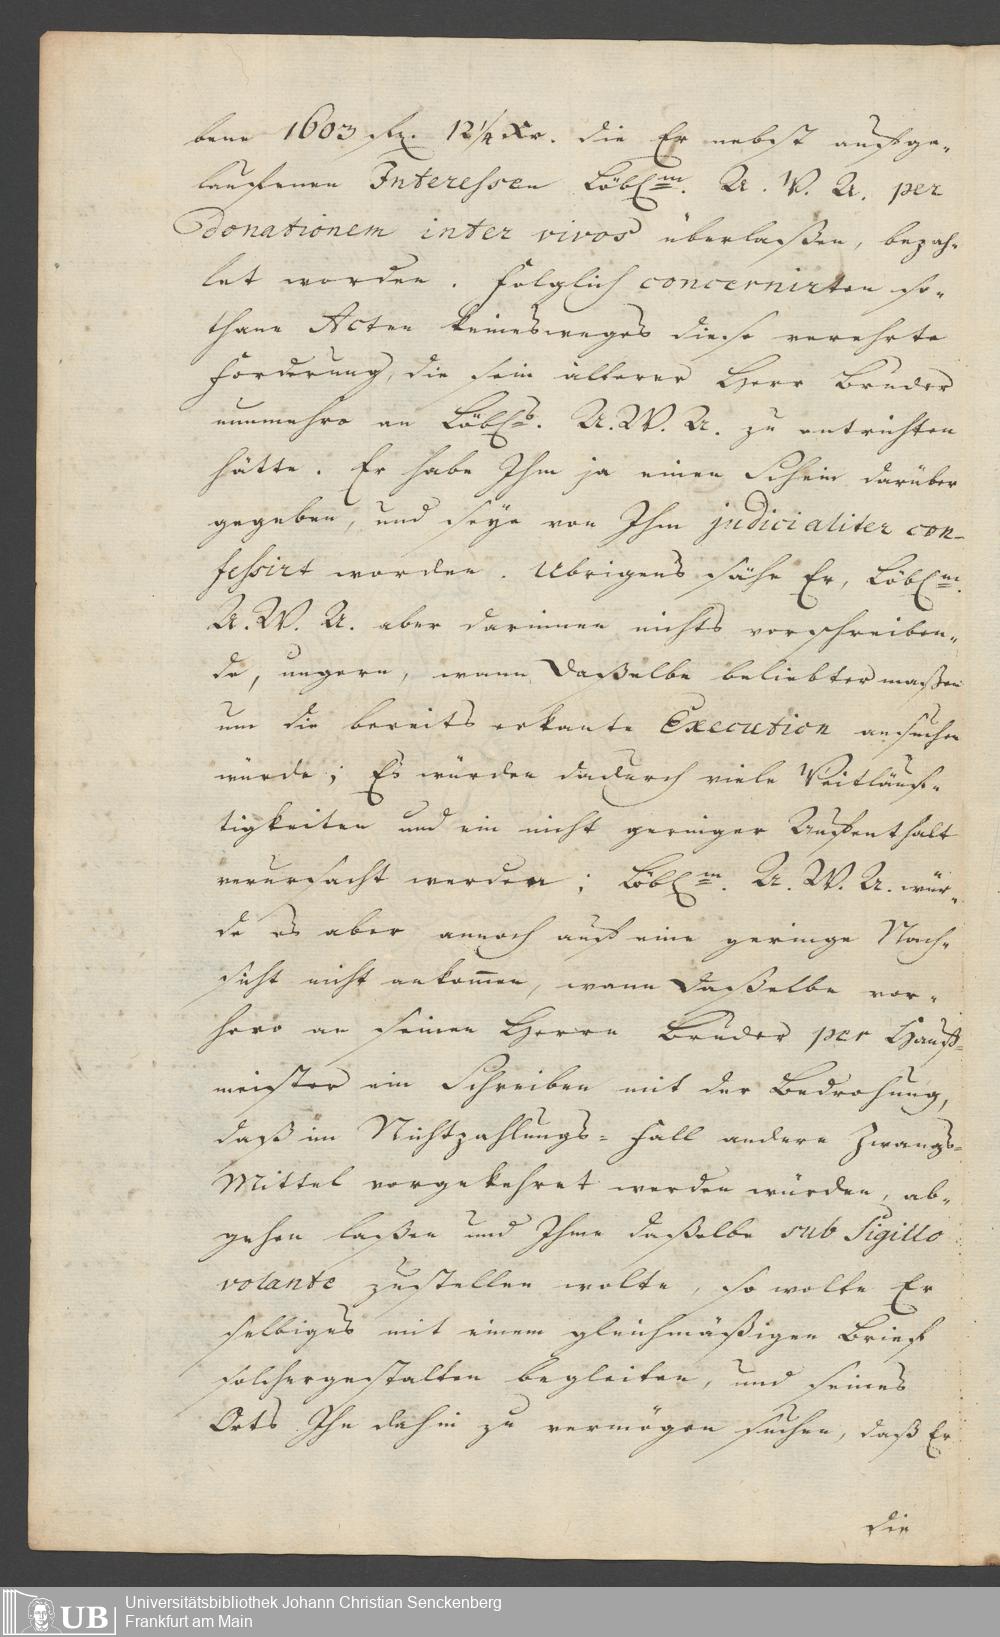 bene 1603 flz. 12¼ Xr. die Er nebst auffge-
lauffenen Interessen Löbl.m. A. W. A. per
Donationem inter vivos überlaßen, bezah-
let worden. Folglich concernirten so-
thane Acten keinesweges diese verehrte
Forderung, die sein älterer Herr Bruder
nunmehro an Löbl.s. A. W. A. zu entrichten
hätte. Er habe Ihm ja einen Schein darüber
gegeben, und seye von Ihm judicialiter con-
fessirt worden. Übrigens sähe Er, Löbl.m.
A. W. A. aber darinnen nichts vorschreiben-
de, ungern, wann Daßelbe beliebter maßen
um die bereits erkante Execution ansuchen
würde; Es würden dadurch viele Weitläuf-
tigkeiten und ein nicht geringer Auffenthalt
verursacht werden; Löbl.m. A. W. A. wür-
de es aber annoch auff eine geringe Nach-
sicht nicht ankomen, wann Daßelbe vor-
hero an seinen Herrn Bruder per Hauß-
meister ein Schreiben mit der Bedrohung,
daß im Nichtzahlungs-Fall andere Zwangs-
Mittel vorgekehret werden würden, ab-
gehen laßen und Ihme daßelbe sub Sigillo
volante zustellen wolte, so wolte Er
selbiges mit einem gleichmäßigen Brieff
solchergestalten begleiten, und seines
Orts Ihn dahin zu vermögen suchen, daß Er
die
UB Universitätsbibliothek Johann Christian Senckenberg
Frankfurt am Main